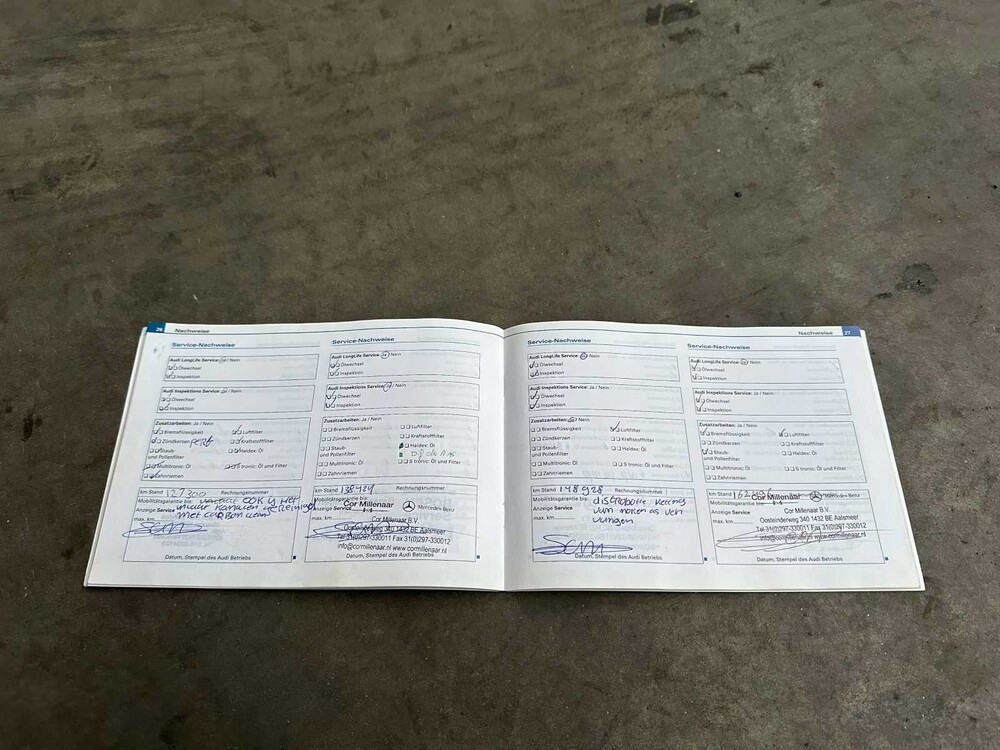 26 Nachweise
Service-Nachweise
Audi LongLife Service: Ja / Nein
Ölwechsel
Inspektion
Audi Inspektions Service: Ja / Nein
Ölwechsel
Inspektion
Zusatzarbeiten: Ja / Nein
Bremsflüssigkeit
Luftfilter
Zündkerzen
Kraftstofffilter
Staub-
und Pollenfilter
Haldex: Öl
Multitronic: Öl
S tronic: Öl und Filter
Zahnriemen
km Stand 127300 Rechnungsnummer
Mobilitätsgarantie bis: OOK
Anzeige Service
max. km
Datum, Stempel des Audi Betriebs
Service-Nachweise
Audi LongLife Service: Ja / Nein
Ölwechsel
Inspektion
Audi Inspektions Service: Ja / Nein
Ölwechsel
Inspektion
Zusatzarbeiten: Ja / Nein
Bremsflüssigkeit
Luftfilter
Zündkerzen
Kraftstofffilter
Staub-
und Pollenfilter
Haldex: Öl
Multitronic: Öl
S tronic: Öl und Filter
Zahnriemen
km Stand Rechnungsnummer
Mobilitätsgarantie bis:
Cor Millenaar Mercedes-Benz
Anzeige Service
Cor Millenaar B.V.
max. km
Oosteinderweg 340 1432 BE Aalsmeer
Tel 31(0)297-330011 Fax 31(0)297-330012
info@cormillenaar.nl www.cormillenaar.nl
Datum, Stempel des Audi Betriebs
Nachweise 27
Service-Nachweise
Audi LongLife Service: Ja / Nein
Ölwechsel
Inspektion
Audi Inspektions Service: Ja / Nein
Ölwechsel
Inspektion
Zusatzarbeiten: Ja / Nein
Bremsflüssigkeit
Luftfilter
Zündkerzen
Kraftstofffilter
Staub-
und Pollenfilter
Haldex: Öl
Multitronic: Öl
S tronic: Öl und Filter
Zahnriemen
km Stand 148928 Rechnungsnummer
Mobilitätsgarantie bis: distributie
Anzeige Service
max. km
Datum, Stempel des Audi Betriebs
Service-Nachweise
Audi LongLife Service: Ja / Nein
Ölwechsel
Inspektion
Audi Inspektions Service: Ja / Nein
Ölwechsel
Inspektion
Zusatzarbeiten: Ja / Nein
Bremsflüssigkeit
Luftfilter
Zündkerzen
Kraftstofffilter
Staub-
und Pollenfilter
Haldex: Öl
Multitronic: Öl
S tronic: Öl und Filter
Zahnriemen
km Stand
Mobilitätsgarantie bis:
Cor Millenaar Mercedes-Benz
Anzeige Service
Cor Millenaar B.V.
max. km
Oosteinderweg 340 1432 BE Aalsmeer
Tel 31(0)297-330011 Fax 31(0)297-330012
www.cormillenaar.nl
Datum, Stempel des Audi Betriebs